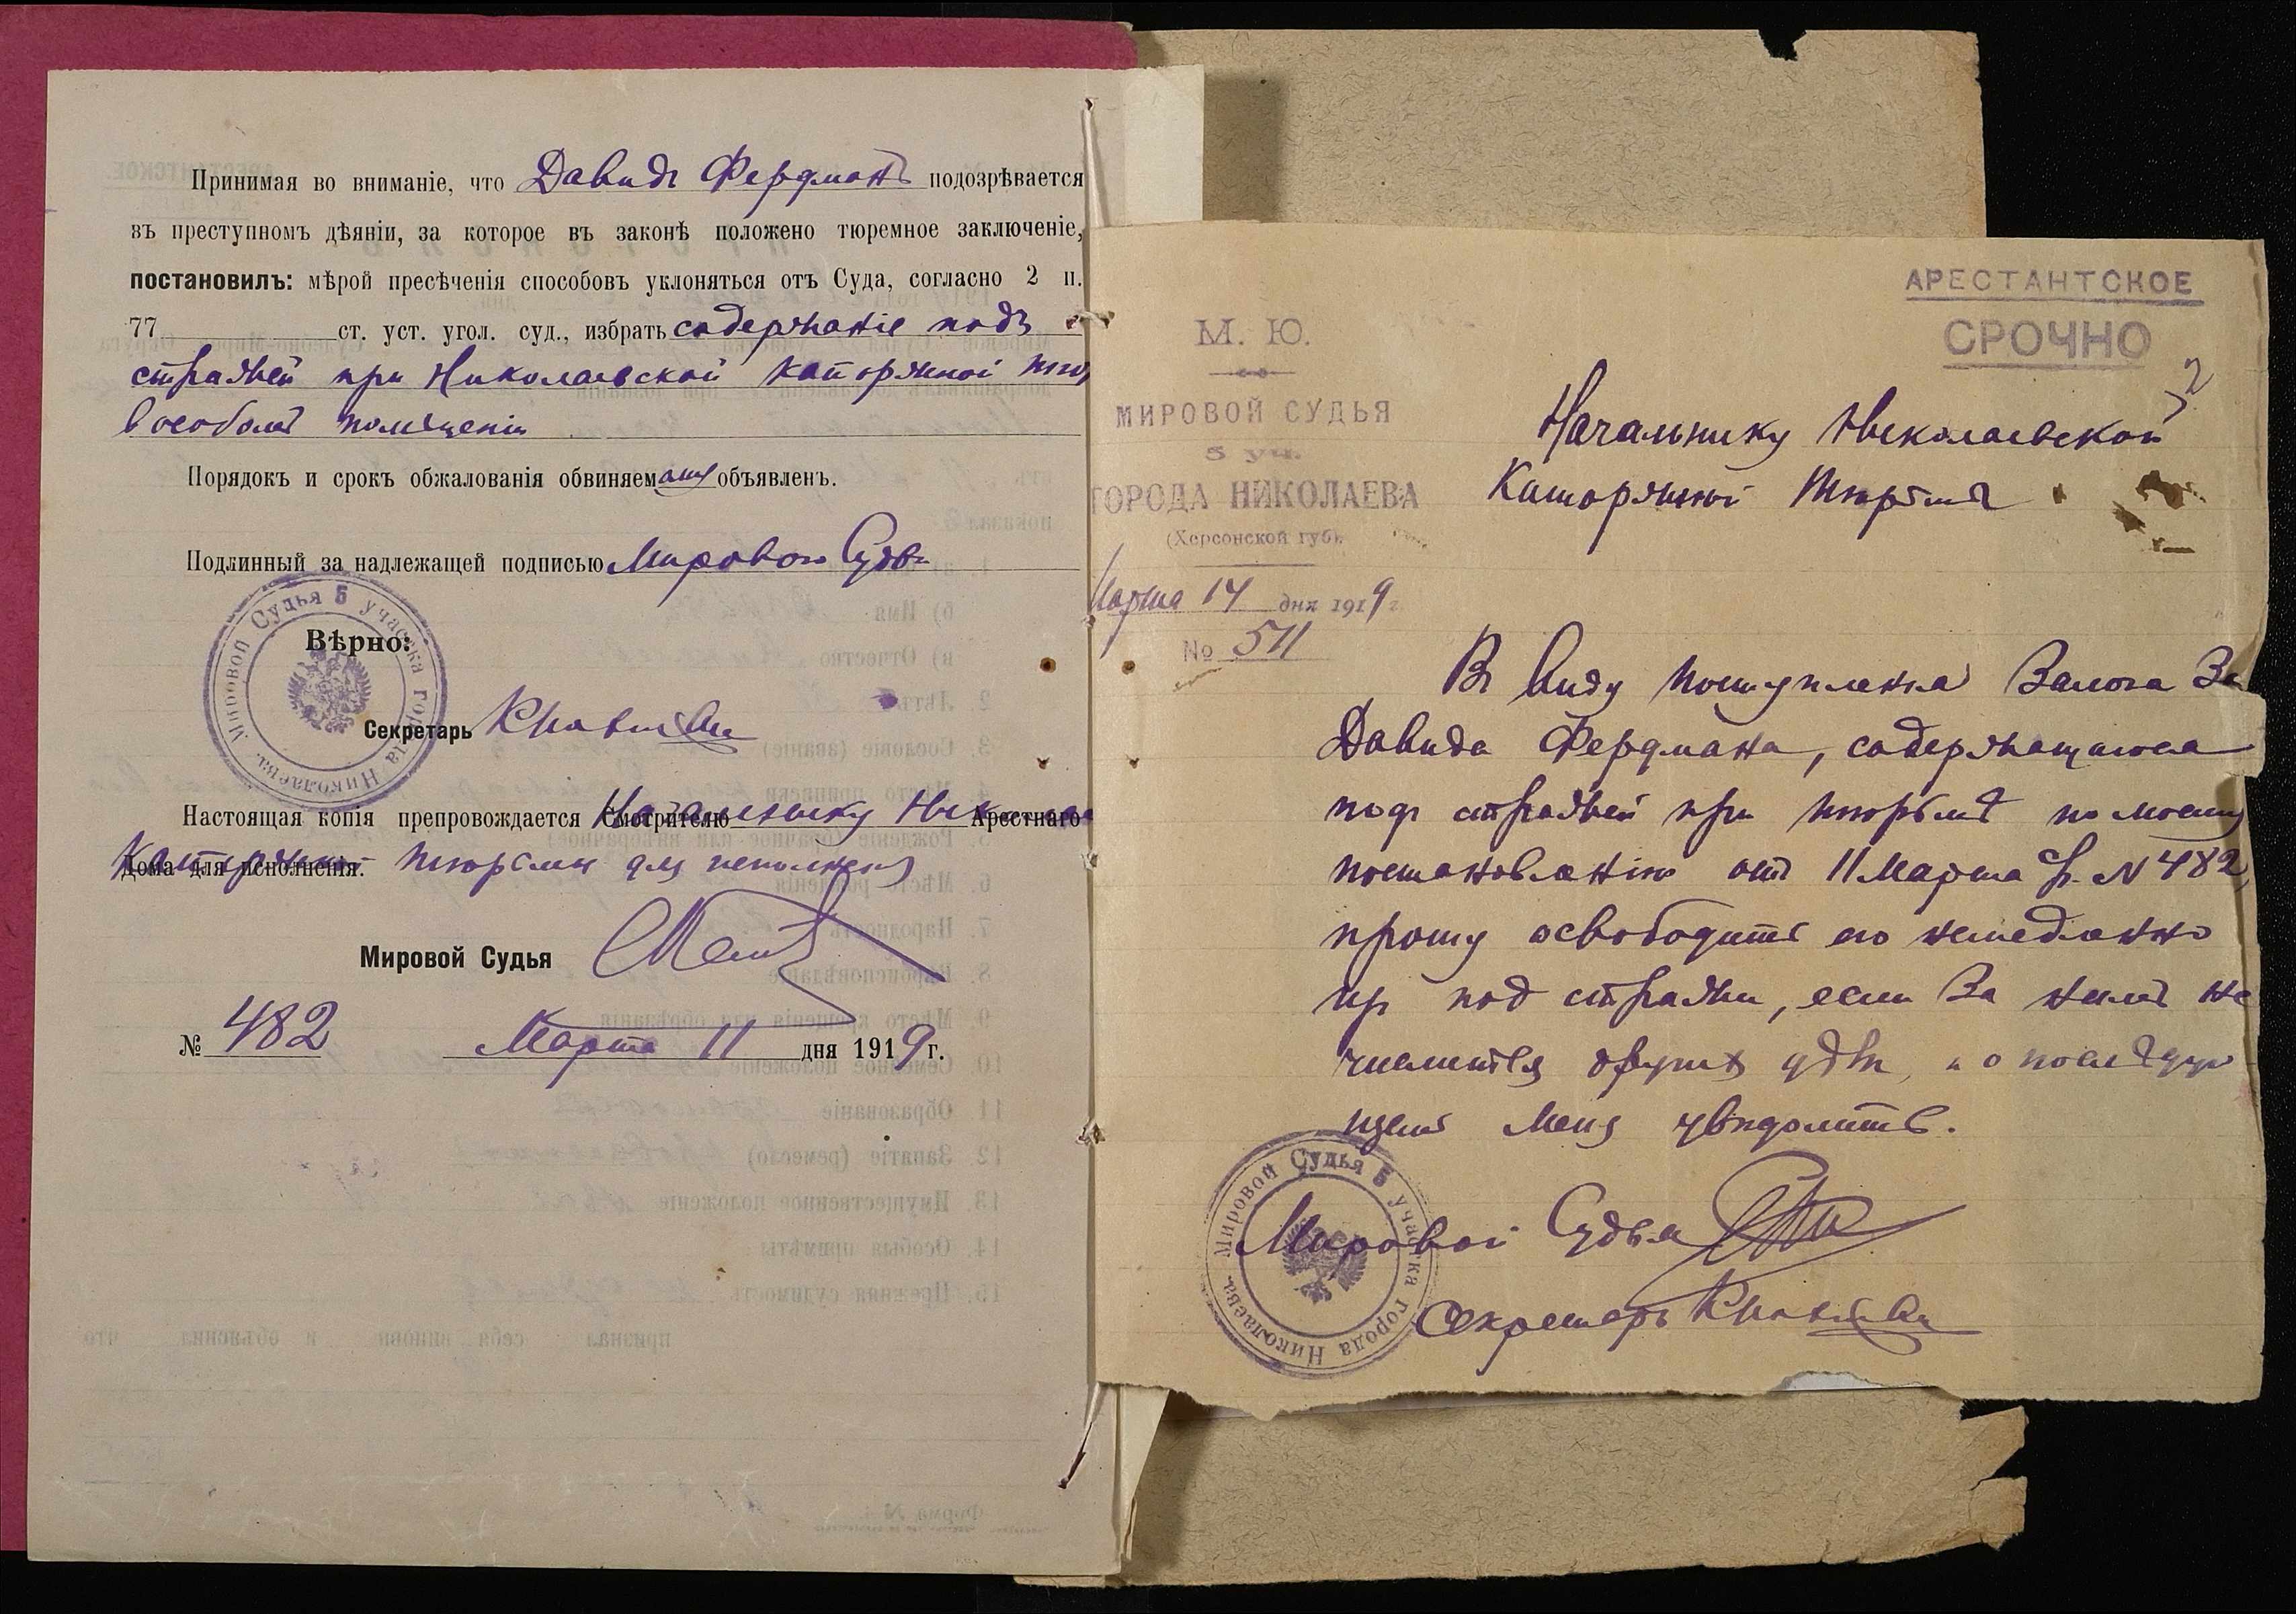 Принимая во вниманіе, что Давидъ Фердманъ подозрѣвается
въ преступномъ дѣяніи, за которое въ законѣ положено тюремное заключеніе,
постановилъ: мѣрой пресѣченія способовъ уклоняться отъ Суда, согласно 2 п.
77 ст. уст. угол. суд., избрать содержаніе подъ
стражей при Николаевской каторжной тюр
в особомъ помѣщеніи
Порядокъ и срокъ обжалованія обвиняемому объявленъ.
Подлинный за надлежащей подписью Мирового Судьи
Мировой Судья 5 участка города Николаева.
Вѣрно:
Секретарь
Настоящая копія препровождается Смотрителю Начальнику Николаев Арестнаго
Дома для исполненія. Каторжной тюрьмы для исполненія
Мировой Судья
№ 482 Марта 11 дня 1919 г.
АРЕСТАНТСКОЕ
СРОЧНО
2
М. Ю.
МИРОВОЙ СУДЬЯ
5 уч.
ГОРОДА НИКОЛАЕВА
(Херсонской губ).
Марта 14 дня 1919 г.
№ 511
Начальнику Николаевской
Каторжной тюрьмы
Въ виду поступленія залога за
Давида Фердмана, содержащагося
подъ стражей при тюрьмѣ по моему
постановленію отъ 11 Марта с.г. N 482,
прошу освободить его немедленно
изъ под стражи, если за нимъ не
числится других дѣлъ, и о послѣдую
щемъ меня увѣдомить.
Мировой Судья 5 участка города Николаева.
Мировой Судья
Секретарь